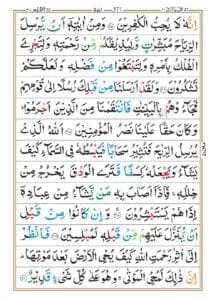 اِنَّهٗ لَا يُحِبُّ الْكٰفِرِيْنَ ۝ وَمِنْ اٰيٰتِهٖۤ اَنْ يُّرْسِلَ
الرِّيَاحَ مُبَشِّرٰتٍ وَّلِيُذِيْقَكُمْ مِّنْ رَّحْمَتِهٖ وَلِتَجْرِيَ
الْفُلْكُ بِاَمْرِهٖ وَلِتَبْتَغُوْا مِنْ فَضْلِهٖ وَلَعَلَّكُمْ
تَشْكُرُوْنَ ۝ وَلَقَدْ اَرْسَلْنَا مِنْ قَبْلِكَ رُسُلًا اِلٰى قَوْمِهِمْ
فَجَآءُوْهُمْ بِالْبَيِّنٰتِ فَانْتَقَمْنَا مِنَ الَّذِيْنَ اَجْرَمُوْا
وَكَانَ حَقًّا عَلَيْنَا نَصْرُ الْمُؤْمِنِيْنَ ۝ اَللّٰهُ الَّذِيْ
يُرْسِلُ الرِّيٰحَ فَتُثِيْرُ سَحَابًا فَيَبْسُطُهٗ فِي السَّمَآءِ كَيْفَ
يَشَآءُ وَيَجْعَلُهٗ كِسَفًا فَتَرَى الْوَدْقَ يَخْرُجُ مِنْ
خِلٰلِهٖ فَاِذَاۤ اَصَابَ بِهٖ مَنْ يَّشَآءُ مِنْ عِبَادِهٖۤ
اِذَا هُمْ يَسْتَبْشِرُوْنَ ۝ وَاِنْ كَانُوْا مِنْ قَبْلِ
اَنْ يُّنَزَّلَ عَلَيْهِمْ مِّنْ قَبْلِهٖ لَمُبْلِسِيْنَ ۝ فَانْظُرْ
اِلٰۤى اٰثٰرِ رَحْمَتِ اللّٰهِ كَيْفَ يُحْيِ الْاَرْضَ بَعْدَ مَوْتِهَا
اِنَّ ذٰلِكَ لَمُحْيِ الْمَوْتٰى وَهُوَ عَلٰى كُلِّ شَيْءٍ قَدِيْرٌ ۝